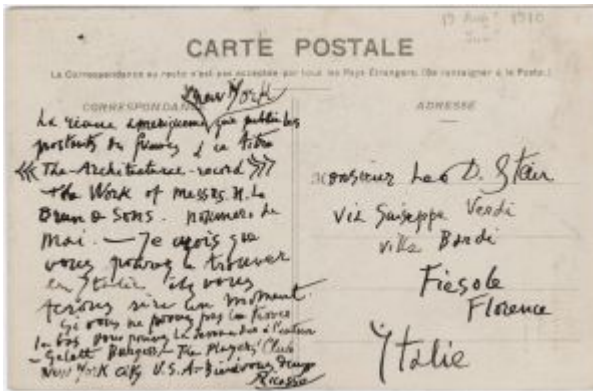 19 Aug 1910
CARTE POSTALE
La Correspondance au recto n'est pas acceptée par tous les Pays Étrangers. (Se renseigner à la Poste.)
CORRESPONDANCE
ADRESSE
New York
La revue americaine que publie les
portraits du a ce titre
The Architectural record
the Work of messrs N. Le
Brun & Sons. numero de
mai. — Je crois que
vous pouvez le trouver
en Italie vous
rire un moment.
Si vous ne pouvez pas le trouver
la bas vous pouvez le a l'auteur
Gelett Burgess — The Players Club
New York City U.S.A.
Picasso
monsieur Leo D. Stein
Via Guiseppe Verdi
villa Bardi
Fiesole
Florence
Italie